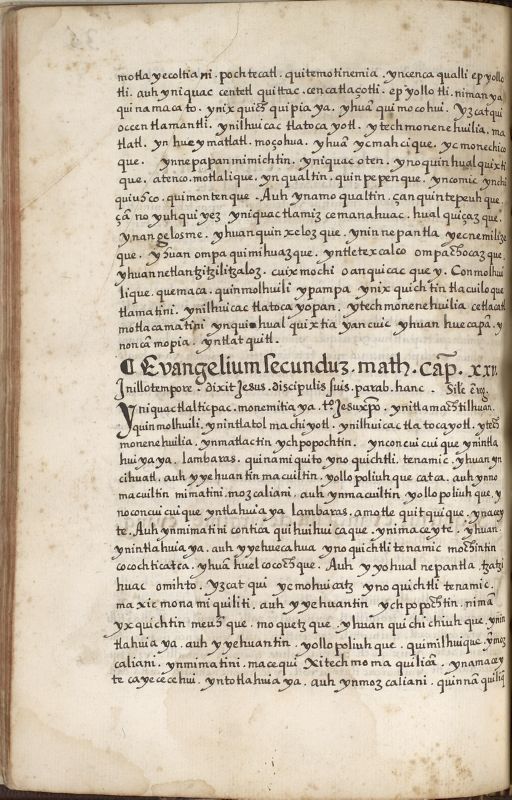 motlayecoltiani . pochtecatl . quitemotinemia . yncenca qualli epyollo
tli . auh yniquac centetl quittac . cencatlaçotli . epyollotli . niman ya
quinamacato . ynixquich quipia ya . yhuā quimocohui . Yzcatqui
occentlamantli . ynilhuicac tlatocayotl . ytechmonenehuilia , ma
tlatl . yn hueymatlatl . moçohua . yhuā ycmahcique . ycmonechico
que . ynnepapanmimichtin . yniquac oten . ynoquinhualquixti
que . atenco . motlalique . ynqualtin . quinpepenque . yncomic ynchi
quiuhco . quimontenque . Auh ynamo qualtin . çanquintepeuhque .
çā no yuhqui yez yniquactlamiz cemanahuac . hualquiçazque .
ynangelosme . yhuanquinxelozque . ynin nepantla yecnemilize
que . yhuan ompaquimihuazque . yntletexcalco ompachocazque .
yhuannetlantzitzilitzaloz . cuixmochi oanquicacque y . Conmolhui
lique . quemaca . quinmolhuili ypampa ynixquichtin tlacuiloque
tlamatini . ynilhuicac tlatocayopan . ytechmonenehuilia cetlacatl
motlacamatini ynquihualquixtia yancuic yhuan huecapā . y
noncāmopia . yntlatquitl .
¶ Evangelium secunduz . math . cap̄ . xxv .
Jnillotempore . dixit Jesus . discipulis suis . parab . hanc . Sile erit
Yniquactlalticpac . monemitia ya . to Jesuxpo . ynitlamachtilhuan .
quinmolhuili . ynintlatolmachiyotl . ynilhuicac tlatocayotl . ytech
monenehuilia . ynmatlactin ychpopochtin . ynconcuicuique ynintla
huiyaya . lambaras . quinamiquito ynoquichtli . tenamic . yhuan yn
cihuatl . auh yyehuantin macuiltin . yollopoliuhque catca . auh ynno
macuiltin mimatini . mozcaliani . auh ynmacuiltin yollopoliuhque , y
noconcuicuique yntlahuiaya lambaras . amotle quitquique . ynacey
te . Auh ynmimatini contica quihuihuicaque . ynimaceyte . yhuan
ynintlahuiaya . auh yyehuecahua ynoquichtli tenamic mochintin
cocochticatca . yhuā huel cocochque . Auh yyohualnepantla . tzatzi
huac omihto . yzcatqui ycmohuicatz ynoquichtli tenamic .
maxicmonamiquiliti . auh yyehuantin ychpopochtin . nimā
yxquichtin meuhque . moquetzque . yhuan quichichiuhque , ynin
tlahuiaya . auh yyehuantin . yollopoliuhque . quimilhuique . ynmoz
caliani . ynmimatini . macequi Xitechmomaquilicā . ynamacey
te cayececehui . yntotlahuiaya . auh ynmozcaliani . quinnāquiliq̄